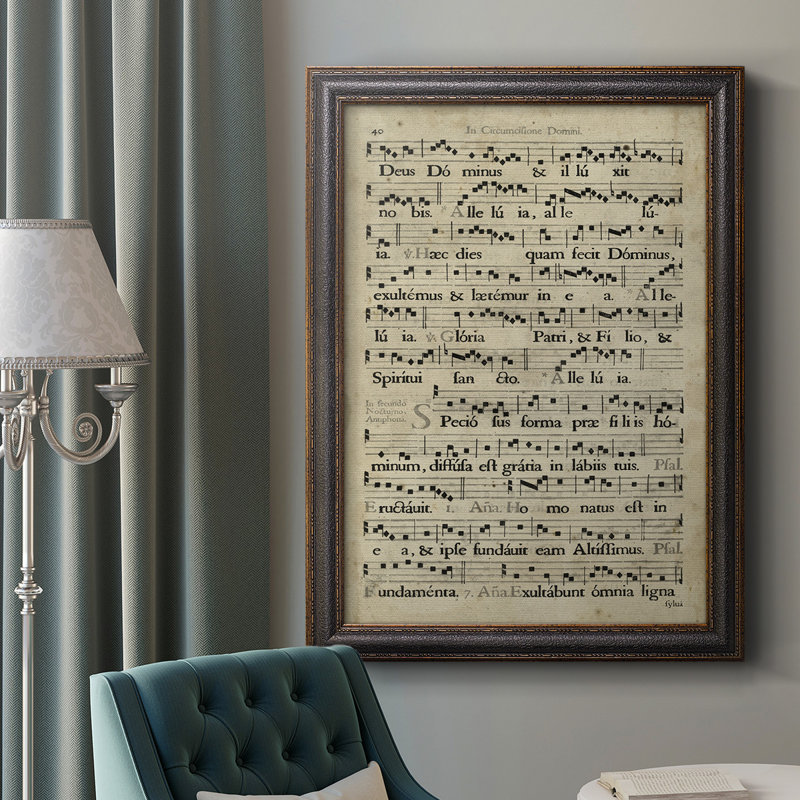 40 In Circumcisione Domini.
Deus Dó minus & il lú xit
no bis. * Alle lú ia, al le lú-
ia. ℣. Hæc dies quam fecit Dóminus,
exultémus & lætémur in e a. * Al le-
lú ia. ℣. Glória Patri, & Fí lio, &
Spirítui ſan cto. * Alle lú ia.
In ſecundo
Nocturno,
Antiphona.
SPeció ſus forma præ fi li is hó-
minum, diffúſa eſt grátia in lábiis tuis. Pſal.
Eructáuit. 1. Aña. Ho mo natus eſt in
e a, & ipſe fundáuit eam Altíſſimus. Pſal.
Fundaménta. 7. Aña. Exultábunt ómnia ligna
ſyluá